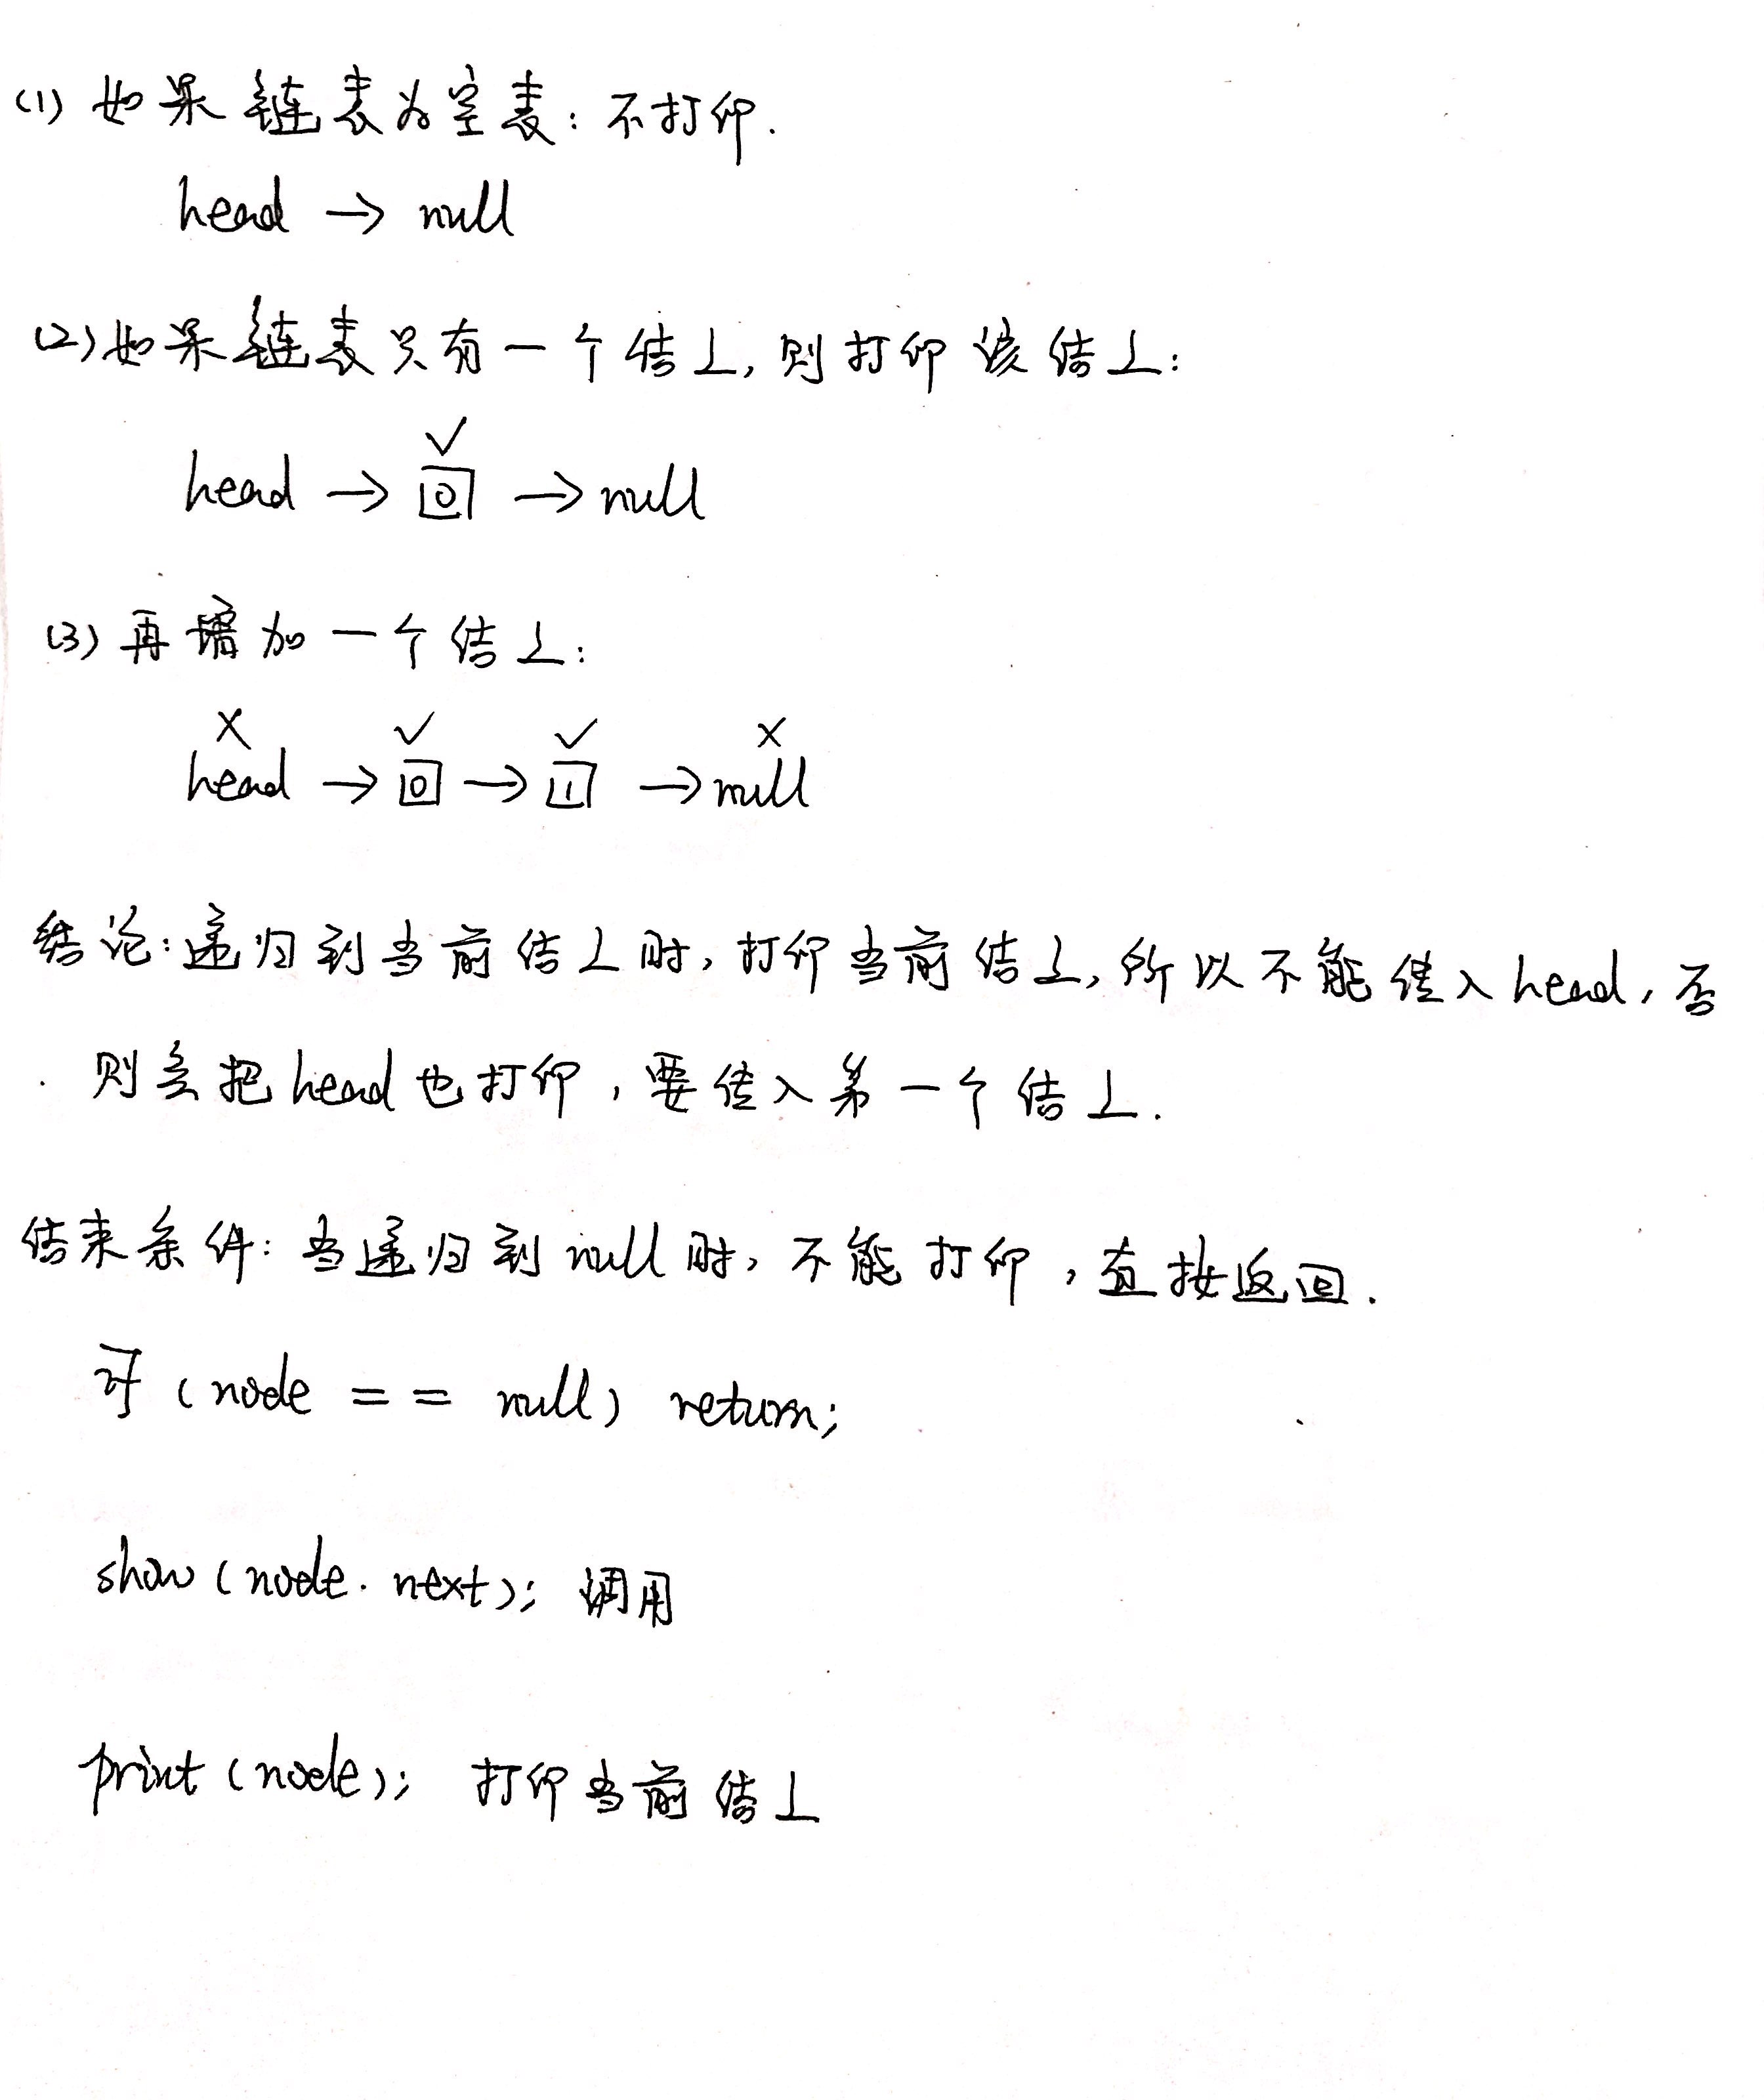 (1) 如果链表为空表: 不打印.
head → null
(2) 如果链表只有一个结上, 则打印该结上:
✓
head → 0 → null
(3) 再增加一个结上:
× ✓ ✓ ×
head → 0 → 1 → null
结论: 递归到当前结上时, 打印当前结上, 所以不能传入head, 否
则会把head也打印, 要传入第一个结上.
结束条件: 当递归到null时, 不能打印, 直接返回.
if (node == null) return;
show(node.next); 调用
print(node); 打印当前结上